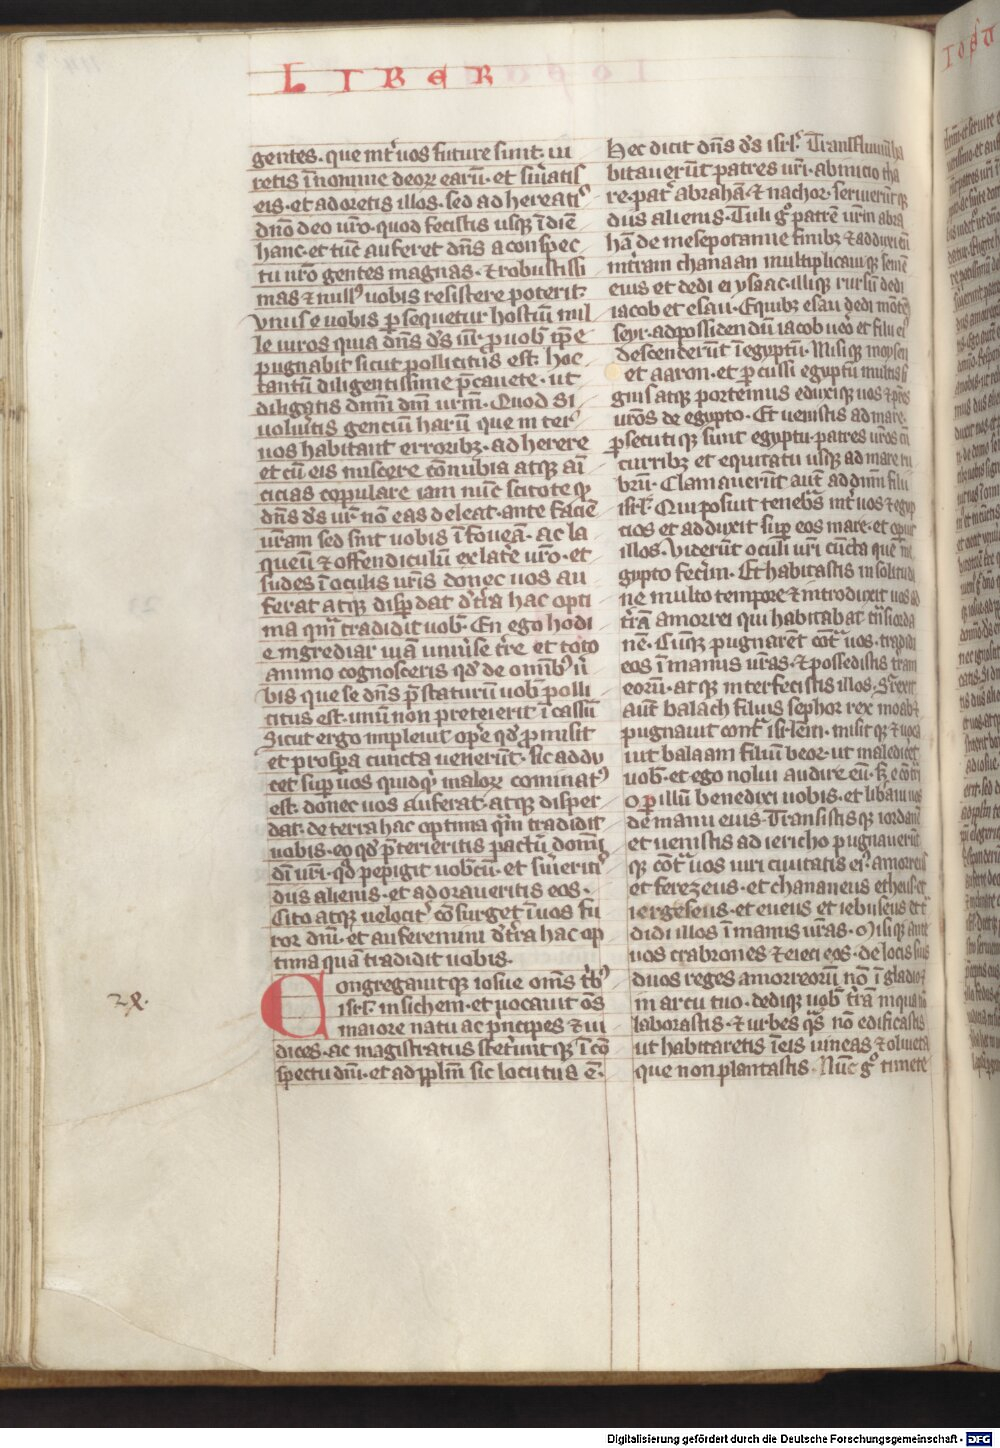 LIBER
gentes. que int̄ uos future sunt. iu
retis ī nomine deoꝝ earū. et s̄uiatis
eis. et adoretis illos. sed adhereatꝰ
dn̄o deo ur̄o. quod fecistis usqꝫ ī diē
hanc. et tūc auferet dn̄s a conspec
tu ur̄o gentes magnas. ⁊ robustissi
mas ⁊ nullꝰ uobis resistere poterit.
vnus e uobis ꝑsequetur hostiū mil
le uiros quia dn̄s d̄s ur̄ ꝓ uob̄ ip̄e
pugnabit sicut pollicitus est. hoc
tantū diligentissime p̄cauete. ut
diligatis dnm̄ dm̄ ur̄m. Quod si
uolūtis gentiū harū que inter
uos habitant erroribꝫ. adherere
et cū eis miscere cōnubia atqꝫ ai
cicias coppulare iam nūc scitote qꝫ
dn̄s d̄s ur̄ nō eas deleat. ante faciē
ur̄am sed sint uobis ī foueā. ac la
queū ⁊ offendiculū ex latere ur̄o. et
sudes ī oculis ur̄is donec uos au
ferat atqꝫ disꝑdat d̄ t̄ra hac opti
ma qm̄ tradidit uob̄. En ego hodi
e ingrediar uiā uniuśe t̄re. et toto
animo cognosceris qd̄ de omībꝰ ū
bis que se dn̄s p̄staturū uob̄ polli
citus est. unū non preterierit ī cassū
Sicut ergo impleuit oꝑe qd̄ ꝓmisit
et prosꝑa cuncta uenerūt. sic addu
cet suꝑ uos quidqꝫ maloꝝ cominatꝰ
est. donec uos auferat. atqꝫ disper
dat. de terra hac optima qm̄ tradidit
uobis. eo qd̄ p̄terieritis pactū domī
dī ur̄i. qd̄ pepigit uob̄cū. et s̄uieritꝰ
dus alienis. et adoraueritis eos.
Cito atqꝫ velocit̄ cōsurget ī uos fu
ror dnī. et auferemini d̄ t̄ra hac op
tima quā tradidit uobis.
Congregauitqꝫ iosue om̄s t̄bꝰ
isrl̄. in sichem. et uocauit ōs
maiore natu ac p̄ncipes ⁊ iu
dices. ac magistratus stet̄untqꝫ ī cō
spectu dnī. et ad pplm̄ sic locutus ē.
Hec dicit dn̄s d̄s isrl̄. Trans fluuiū ha
bitauerūt patres ur̄i. ab inicio tha
re. pat̄ abrahā ⁊ nachor. seruierūtqꝫ
dus alienis. Tuli gͦ patrē ur̄m abra
hā de mesepotamie finibꝫ ⁊ adduxi eū
in t̄ram chanaan multiplicauiqꝫ semē
eius et dedi ei ysaac. illiqꝫ rursū dedi
iacob et esau. E quibꝫ esau dedi mōtē
seyr. ad possidendū iacob uo et filii eꝰ
descenderūt ī egyptū. Misiqꝫ moysen
et aaron. et ꝑcussi egyptū multis si
gnis atqꝫ portentis eduxiqꝫ uos ⁊ p̄res
ur̄os de egypto. Et uenistis ad mare.
ꝑsecutiqꝫ sunt egyptii. patres ur̄os cū
curribꝫ et equitatu usqꝫ ad mare ru
brū. Clamauerūt aut̄ ad dnm̄ filii
isrl̄. Qui posuit teneb̄s int̄ uos ⁊ egyp
cios et adduxit suꝑ eos mare. et opuit
illos. Viderūt oculi ur̄i cūcta que in e
gypto fec̄im. Et habitastis in solitudi
ne multo tempore ⁊ introduxit uos ad
t̄rā amorrei qui habitabat t̄ns iorda
nē. Cūqꝫ pugnarēt cōt̄ uos. tradidi
eos ī manus ur̄as. ⁊ possedistis t̄ram
eorū. atqꝫ interfecistis illos. Surrexit
aut̄ balach filius sephor rex moab ⁊
pugnauit cont̄ isrl̄em. misit qꝫ ⁊ uoca
uit balaam filiū beor. ut malediceret
uob̄. et ego nolui audire eū. S; e cōtri
o ꝑ illū benedixi uobis. et libaui uos
de manu eius. Transistisqꝫ iordanē
et uenistis ad iericho pugnauerūt
qꝫ cōt̄ uos uiri ciuitatis eiꝰ. amorreus
et ferezeus. et chananeus et heus. et
iergeseus. et eueus et iebuseus et t̄
didi illos ī manus ur̄as. Misiqꝫ ante
uos crabrones ⁊ eieci eos. de locis suis
duos reges amorreorū nō ī gladio ⁊
in arcu tuo. dediqꝫ uob̄ t̄rā in qua nō
laborastis. ⁊ urbes qs̄ nō edificastis
ut habitaretis ī eis uineas ⁊ oliueta
que non plantastis. Nūc gͦ timete
Digitalisierung gefördert durch die Deutsche Forschungsgemeinschaft - DFG